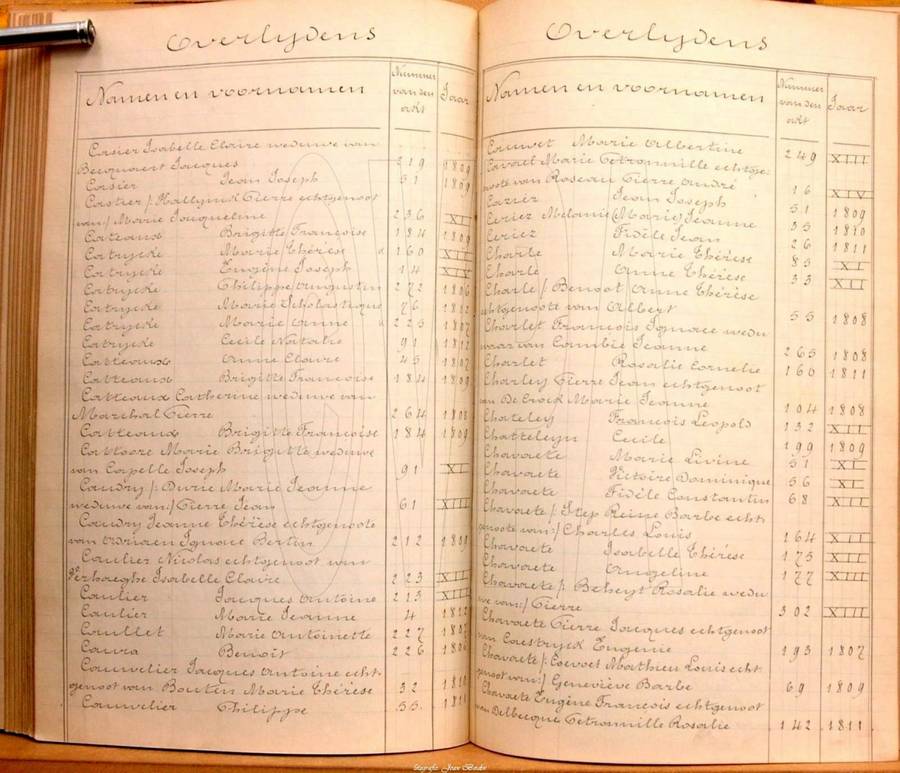 Overlijdens
Namen en voornamen
Nummer van den acht
Jaar
Casier Isabelle Claire weduwe van
Becquaert Jacques 219 1809
Casier Jean Joseph 51 1809
Castier /: Hallyn Pierre echtgenoot
van:/ Marie Jacqueline 236
Catteaux Brigitte Françoise 184 1809
Catrycke Marie Thérèse 160 XII
Catrycke Eugène Joseph 14
Catrycke Philippe Augustin 272 1806
Catrycke Marie Scholastique 76
Catrycke Marie Anne 225 1807
Catrycke Cecile Natalie 91 1812
Catteaux Anne Claire 45 1807
Catteaux Brigitte Françoise 184 1809
Catteaux Catherine weduwe van
Marchal Pierre 264 1808
Catteaux Brigitte Françoise 184 1809
Cattoore Marie Brigitte weduwe
van Capelle Joseph 91 XI
Caudry /: Durie Marie Jeanne
weduwe van:/ Pierre Jean 61 XIII
Caudry Jeanne Thérèse echtgenoote
van Ignace Bertin 212
Caulier Nicolas echtgenoot van
Verhaeghe Isabelle Claire 223
Caulier Jacques Antoine 213 XIII
Caulier Marie Jeanne 4 1812
Caullet Marie Antoinette 227 1807
Caura Benoit 226
Cauvelier Jacques Antoine echt-
genoot van Bouten Marie Thérèse 32
Cauvelier Philippe 55
Overlijdens
Namen en voornamen
Nummer van den acht
Jaar
Cauwet Marie Albertine 249 XIII
Cavael Marie Petronnille echtge-
noote van Roseau Pierre André 16 XIV
Cazier Jean Joseph 51 1809
Ceriez Melanie (Marie) Jeanne 35 1810
Ceriez Fidèle Jean 26 1811
Charle Marie Thérèse 83 XI
Charle Anne Thérèse 33 XII
Charle /: Benoot Anne Thérèse
echtgenoote van Albert 55 1808
Charlet François Ignace wedu
waar van Cambie Jeanne 265 1808
Charlet Rosalie Cornelie 160 1811
Charley Pierre Jean echtgenoot
van De Croix Marie Jeanne 104 1808
Chateley François Leopols 132 XII
Chatteleyn Cecile 199 1809
Chavaete Marie Livine 51 XI
Chavaete Victoire Dominique 56 XI
Chavaete Fidèle Constantin 68 XIII
Chavaete /: Step Reine Barbe echt-
genoote van:/ Charles Louis 164 XII
Chavaete Isabelle Thérèse 175 XIII
Chavaete Angeline 177 XIII
Chavaete /: Beheyt Rosalie wedu
we van:/ Pierre 302 XIII
Chavaete Pierre Jacques echtgenoot
van Caestryck Eugenie 193 1807
Chavaete /: Coevoet Mathieu Louis echt-
genoot van:/ Geneviève Barbe 69 1809
Chavaete Eugène François echtgenoot
van Delbecque Petronnille Rosalie 142 1811